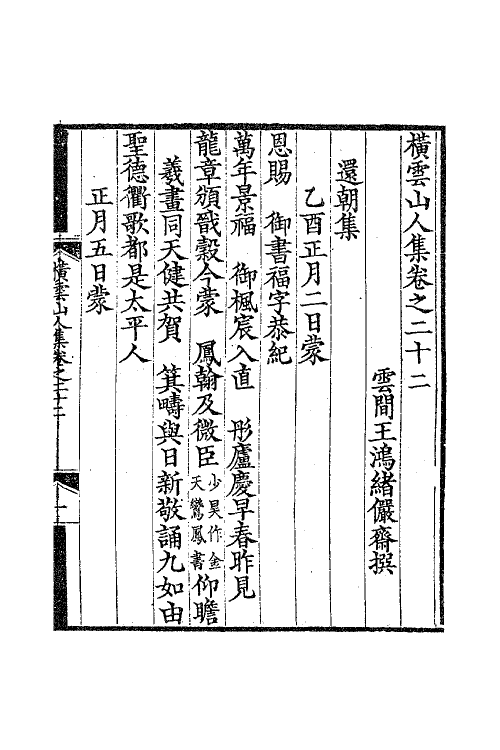 橫雲山人集卷之二十二
雲間王鴻緒儼齋撰
還朝集
乙酉正月二日蒙
恩賜　御書福字恭紀
萬年景福　御楓宸入直　彤廬慶早春昨見
龍章頒戩穀今蒙　鳳翰及微臣少昊作金天鸞鳳書仰瞻
羲畫同天健共賀　箕疇與日新敬誦九如由
聖德衢歌都是太平人
正月五日蒙
橫雲山人集卷之二十二
一